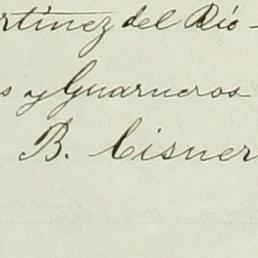 rtínez del Río -
s y Guarneros
B. Cisner